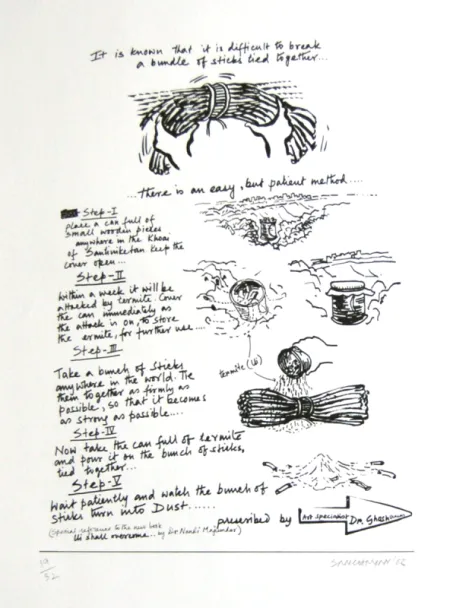 It is known that it is difficult to break
a bundle of sticks tied together...
...there is an easy, but patient method....
Step-I
place a can full of
small wooden picks
anywhere in the Khoai
of Santiniketan keep the
cover open...
Step-II
within a week it will be
attacked by termite. Cover
the can immediately as
the attack is on, to store
the ermite, for further use....
Step-III
Take a bunch of sticks
anywhere in the world. Tie
them together as firmly as
possible, so that it becomes
as strong as possible....
termite
Step-IV
Now take the can full of termite
and pour it on the bunch of sticks,
tied together...
Step-V
Wait patiently and watch the bunch of
sticks turn into Dust......
prescribed by
Art specialist
Dr.
to the new book
We shall overcome... by Dr. Nandi